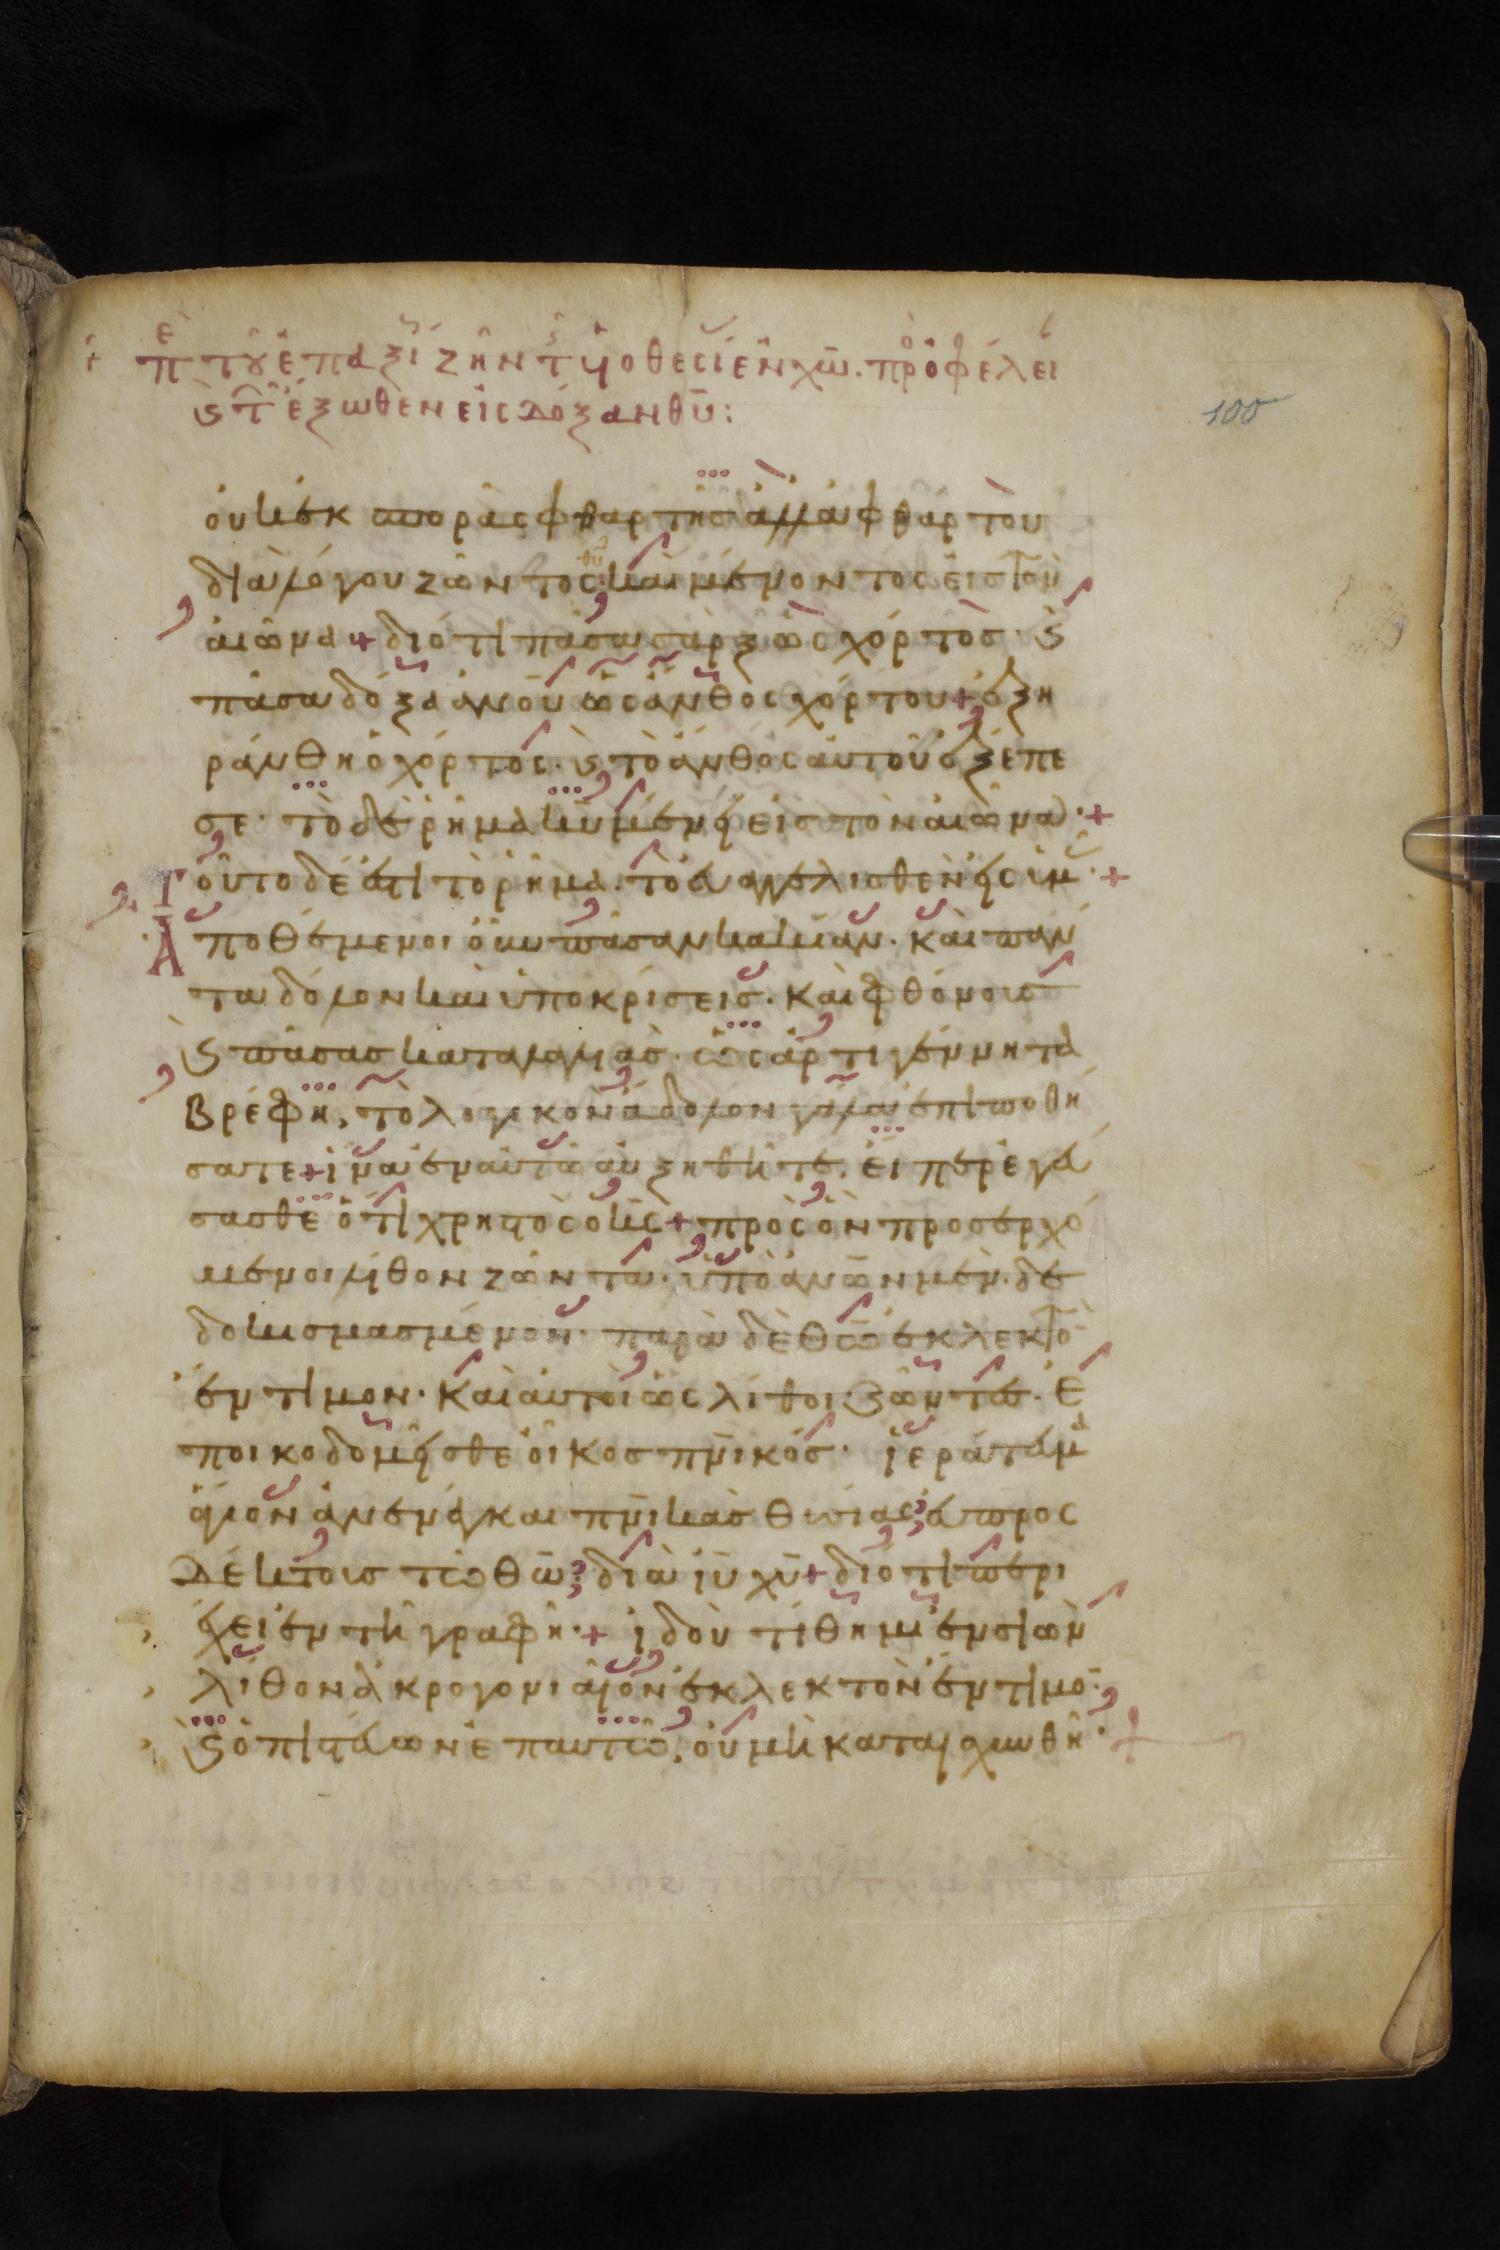 π̅ε̅ τοῦ ἐπαξίως ζῆν τῆς υἱοθεσίας ἐν χῶ. πρὸς ὀφέλειαν
καὶ τῶν ἔξωθεν εἰς δόξαν θῦ:
100
οὐκ ἐκ σπορᾶς φθαρτῆς ἀλλὰ ἀφθάρτου
διὰ λόγου ζῶντος θῦ καὶ μένοντος εἰς τὸν
αἰῶνα + διότι πᾶσα σὰρξ ὡς χόρτος· καὶ
πᾶσα δόξα ἀνοῦ ὡς ἄνθος χόρτου + ἐξη
ράνθη ὁ χόρτος· καὶ τὸ ἄνθος αὐτοῦ ἐξέπε
σε· τὸ δὲ ῥῆμα κῦ μένει εἰς τὸν αἰῶνα· +
Τοῦτο δέ ἐστι τὸ ῥῆμα. τὸ εὐαγγελισθὲν εἰς ὑμ +
Ἀποθέμενοι οὖν πᾶσαν κακίαν. καὶ πάν
τα δόλον καὶ ὑποκρίσεις. καὶ φθόνους
καὶ πάσας καταλαλιάς. ὡς ἀρτιγέννητα
βρέφη, τὸ λογικὸν ἄδολον γάλα ἐπιποθή
σατε + ἵνα ἐν αὐτῶ αὐξηθῆτε. εἴπερ ἐγεύ
σασθε ὅτι χρηστὸς ὁ κς + πρὸς ὃν προσερχό
μενοι λίθον ζῶντα. ὑπὸ ἀνῶν μὲν. δε
δοκιμασμένον· παρὰ δὲ θῶ ἐκλεκτὸ
ἔντιμον. Καὶ αὐτοὶ ὡς λίθοι ζῶντες. ἐ
ποικοδομεῖσθε οἶκος πνικός· ἱεράτευμα
ἅγιον ἀνενέγκαι πνικὰς θυσίας εὐπροσ
δέκτους τῶ θῶ· διὰ ἰῦ χῦ + διότι περι
έχει ἐν τῆ γραφῆ· + ἰδοὺ τίθημι ἐν σιὼν
λίθον ἀκρογονιαῖον ἐκλεκτὸν ἔντιμο·
καὶ ὁ πιστεύων ἐπ αυτῶ, οὐ μὴ καταισχυνθῆ· +